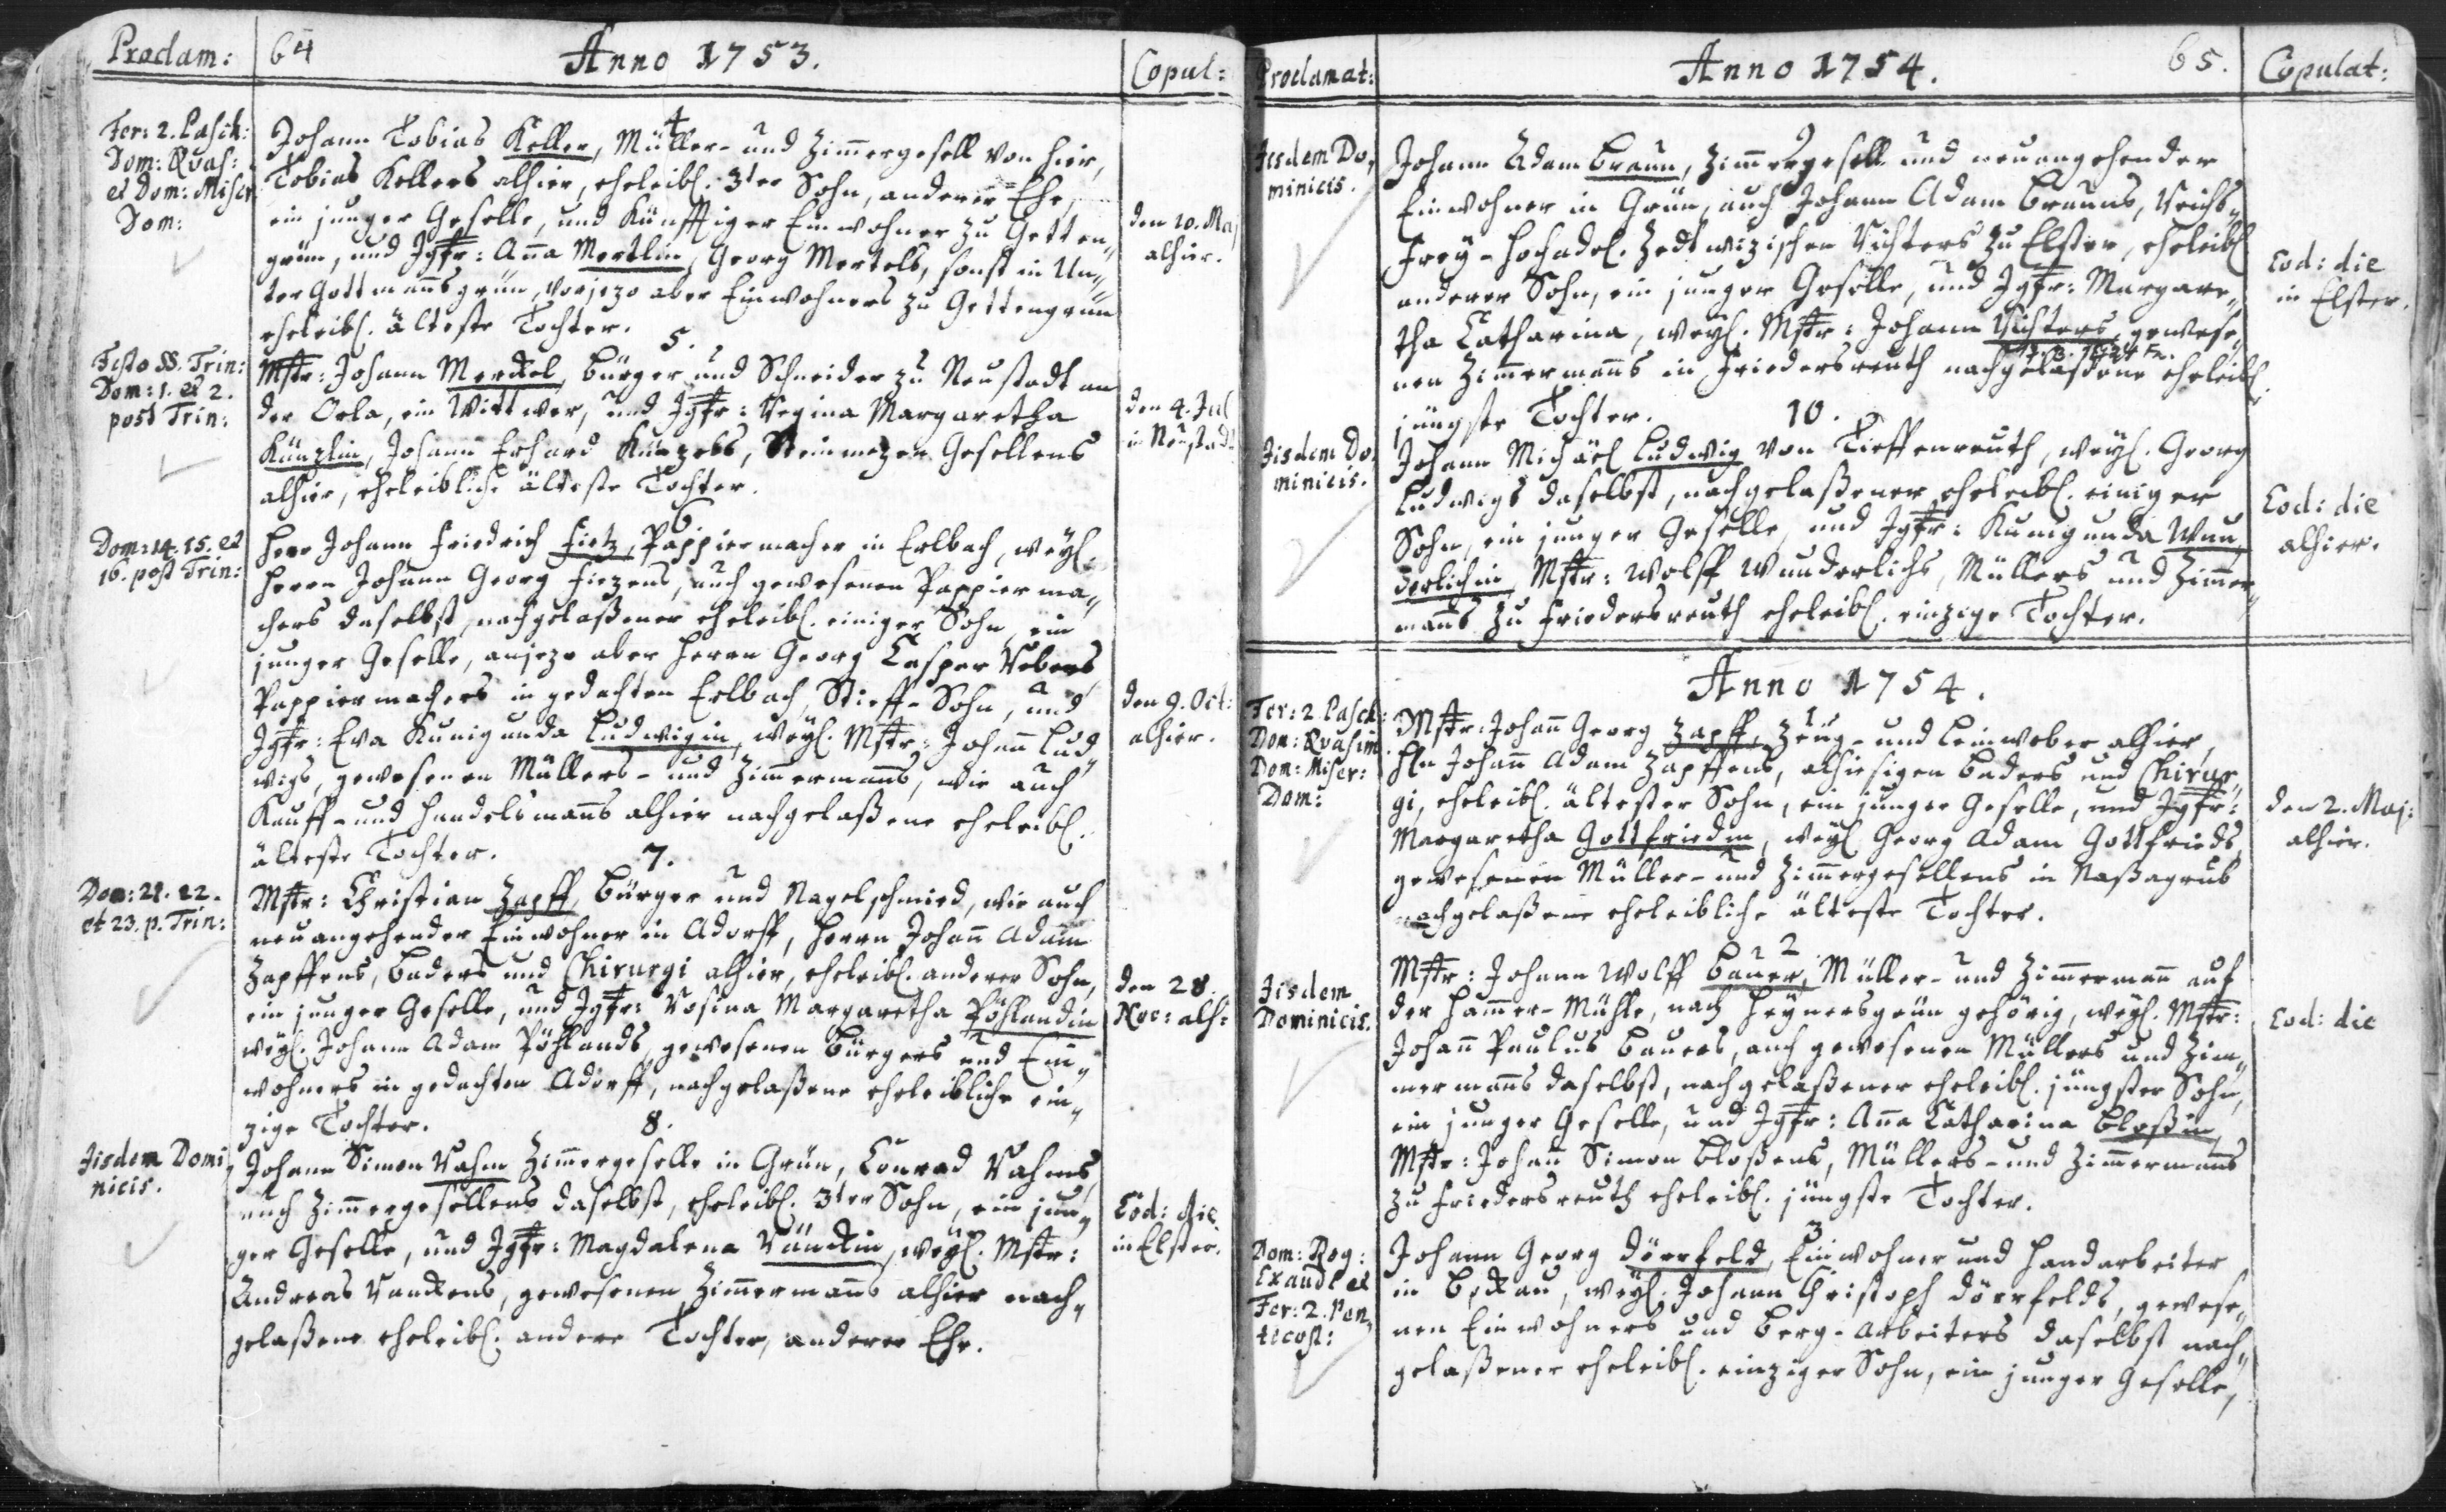 Proclam:
64
Anno 1753.
Copul:
Fer: 2. Pasch:
Dom: Quas:
et Dom: Miser
Dom:
4
Johann Tobias Keller, Müller- und Zimmergesell von hier,
Tobias Kellers alhier, eheleibl. 3ter Sohn, anderer Ehe,
ein junger Geselle, und künfftiger Einwohner zu Getten„
grün, und Jgfr: Anna Mertlin, Georg Mertels, sonst in Un„
ter Gottmannsgrün, vorjezo aber Einwohners zu Gettengrün
eheleibl. älteste Tochter.
den 10. Maj
alhier.
5.
Festo SS. Trin:
Dom: 1. et 2.
post Trin:
Mstr: Johann Merckel, Bürger und Schneider zu Neustadt an
der Orla, ein Wittwer, und Jgfr: Regina Margaretha
Künzlin, Johann Erhard Künzels, Steinmezen Gesellens
alhier, eheleibliche älteste Tochter.
den 4. Jul
in Neustadt
6
Dom: 14. 15. et
16. post Trin:
Herr Johann Friedrich Fietz, Pappiermacher in Erlbach, weyl.
Herrn Johann Georg Fiezens, auch gewesenen Pappierma„
chers daselbst, nachgelaßener eheleibl. einiger Sohn, ein
junger Geselle, anjezo aber Herrn Georg Caspar Vebers,
Pappiermachers in gedachten Erlbach, Stieff-Sohn, und
Jgfr: Eva Kunigunda Ludwigin, weyl. Mstr: Johann Lud„
wigs, gewesenen Müllers- und Zimmermanns, wie auch
Kauff- und Handelsmanns alhier nachgelaßene eheleibl.
älteste Tochter.
den 9. Oct:
alhier.
7.
Dom: 21. 22.
et 23. p. Trin:
Mstr: Christian Zapff, Bürger und Nagelschmied, wie auch
neuangehender Einwohner in Adorff, Herrn Johann Adam
Zapffens, Baders und Chirurgi alhier, eheleibl. anderer Sohn,
ein junger Geselle, und Jgfr: Rosina Margaretha Pöhlandin
weyl. Johann Adam Pöhlands, gewesenen Bürgers und Ein„
wohners in gedachten Adorff, nachgelaßene eheleibliche ein„
zige Tochter.
den 28.
Nov: alh:
8.
Iisdem Domi
nicis.
Johann Simon Rahm Zimmergeselle in Grün, Conrad Rahms,
auch Zimmergesellens daselbst, eheleibl. 3ter Sohn, ein jun„
ger Geselle, und Jgfr: Magdalena Räuckin, weyl. Mstr:
Andreas Rauckens, gewesenen Zimmermanns alhier nach„
gelaßene eheleibl. andere Tochter, anderer Ehe.
Eod: die
in Elster.
Proclamat:
Anno 1754.
65.
Copulat:
9
Iisdem Do„
minicis.
Johann Adam Braun, Zimmergesell und neuangehender
Einwohner in Grün, auch Johann Adam Brauns, Reichs„
Frey-Hochadel. Zedtwizischen Richters zu Elster, eheleibl
anderer Sohn, ein junger Geselle, und Jgfr: Margare„
tha Catharina, weyl. Mstr: Johann Richters, gewese„
nen Zimmermanns in Friedersreuth nachgelaßene eheleibl.
jüngste Tochter.
Eod: die
in Elster.
10.
Iisdem Do„
minicis.
Johann Michäel Ludwig von Tieffenreuth, weyl. Georg
Ludwigs daselbst, nachgelaßener eheleibl. einiger
Sohn, ein junger Geselle, und Jgfr: Kunigunda Wun„
derlichin, Mstr: Wolff Wunderlichs, Müllers und Zimmer„
manns zu Friedersreuth eheleibl. einzige Tochter.
Eod: die
alhier.
Anno 1754.
1
Fer: 2. Pasch:
Dom: Quasim.
Dom: Miser:
Dom:
Mstr: Johann Georg Zapff, Zeug- und Leinweber alhier,
Hln Johann Adam Zapffens, alhiesigen Baders und Chirur„
gi, eheleibl. ältester Sohn, ein junger Geselle, und Jgfr:
Margaretha Gottfriedin, weyl Georg Adam Gottfrieds,
gewesenen Müller- und Zimmergesellens in Naßagrub
nachgelaßene eheleibliche älteste Tochter.
den 2. Maj:
alhier.
2
Iisdem
Dominicis.
Mstr: Johann Wolff Bauer, Müller- und Zimmermann auf
der Hammer-Mühle, nach Heynersgrün gehörig, weyl. Mstr:
Johann Paulus Bauers, auch gewesenen Müllers und Zim„
mermanns daselbst, nachgelaßener eheleibl. jüngster Sohn,
ein junger Geselle, und Jgfr: Anna Catharina Bloßin,
Mstr: Johann Simon Bloßens, Müllers- und Zimmermanns
zu Friedersreuth eheleibl. jüngste Tochter.
Eod: die
3
Dom: Rog:
Exaudi et
Fer: 2. Pen„
tecost:
Johann Georg Dörrfeld, Einwohner und Handarbeiter
in Bockau, weyl. Johann Christoph Dörrfelds, gewese„
nen Einwohners und Berg-Arbeiters daselbst nach„
gelaßener eheleibl. einziger Sohn, ein junger Geselle,